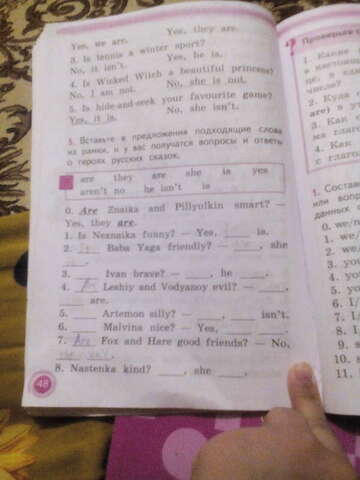 Yes, we are. Yes, they are.
3. Is tennis a winter sport?
No, it isn't. Yes, he is.
4. Is Wicked Witch a beautiful princess?
No, I am not. No, she is not.
5. Is hide-and-seek your favourite game?
Yes, it is. No, she isn't.
5. Вставьте в предложения подходящие слова
из рамки, и у вас получатся вопросы и ответы
о героях русских сказок.
are they are she is yes
aren't no he isn't is
0. Are Znaika and Pillyulkin smart? —
Yes, they are.
1. Is Neznaika funny? — Yes, ____ is.
2. ____ Baba Yaga friendly? — ____, she
____.
3. ____ Ivan brave? — ____, he ____.
4. Are Leshiy and Vodyanoy evil? — ____,
____ are.
5. ____ Artemon silly? — ____, ____ isn't.
6. ____ Malvina nice? — Yes, ____ ____.
7. Are Fox and Hare good friends? — No,
____.
8. Nastenka kind? ____, she ____.
48
Проверяем
1. Какие
в настоящ
це, в ед
числе?
2. Куда
are) в
3. Как
ма глаг
4. Как
с глаго
1. Состав
или вопр
данных с
0. we/n
1. we/
2. we/
3. you
4. yo
5. yo
6.
7. I
8. I
9. s
10.
11.